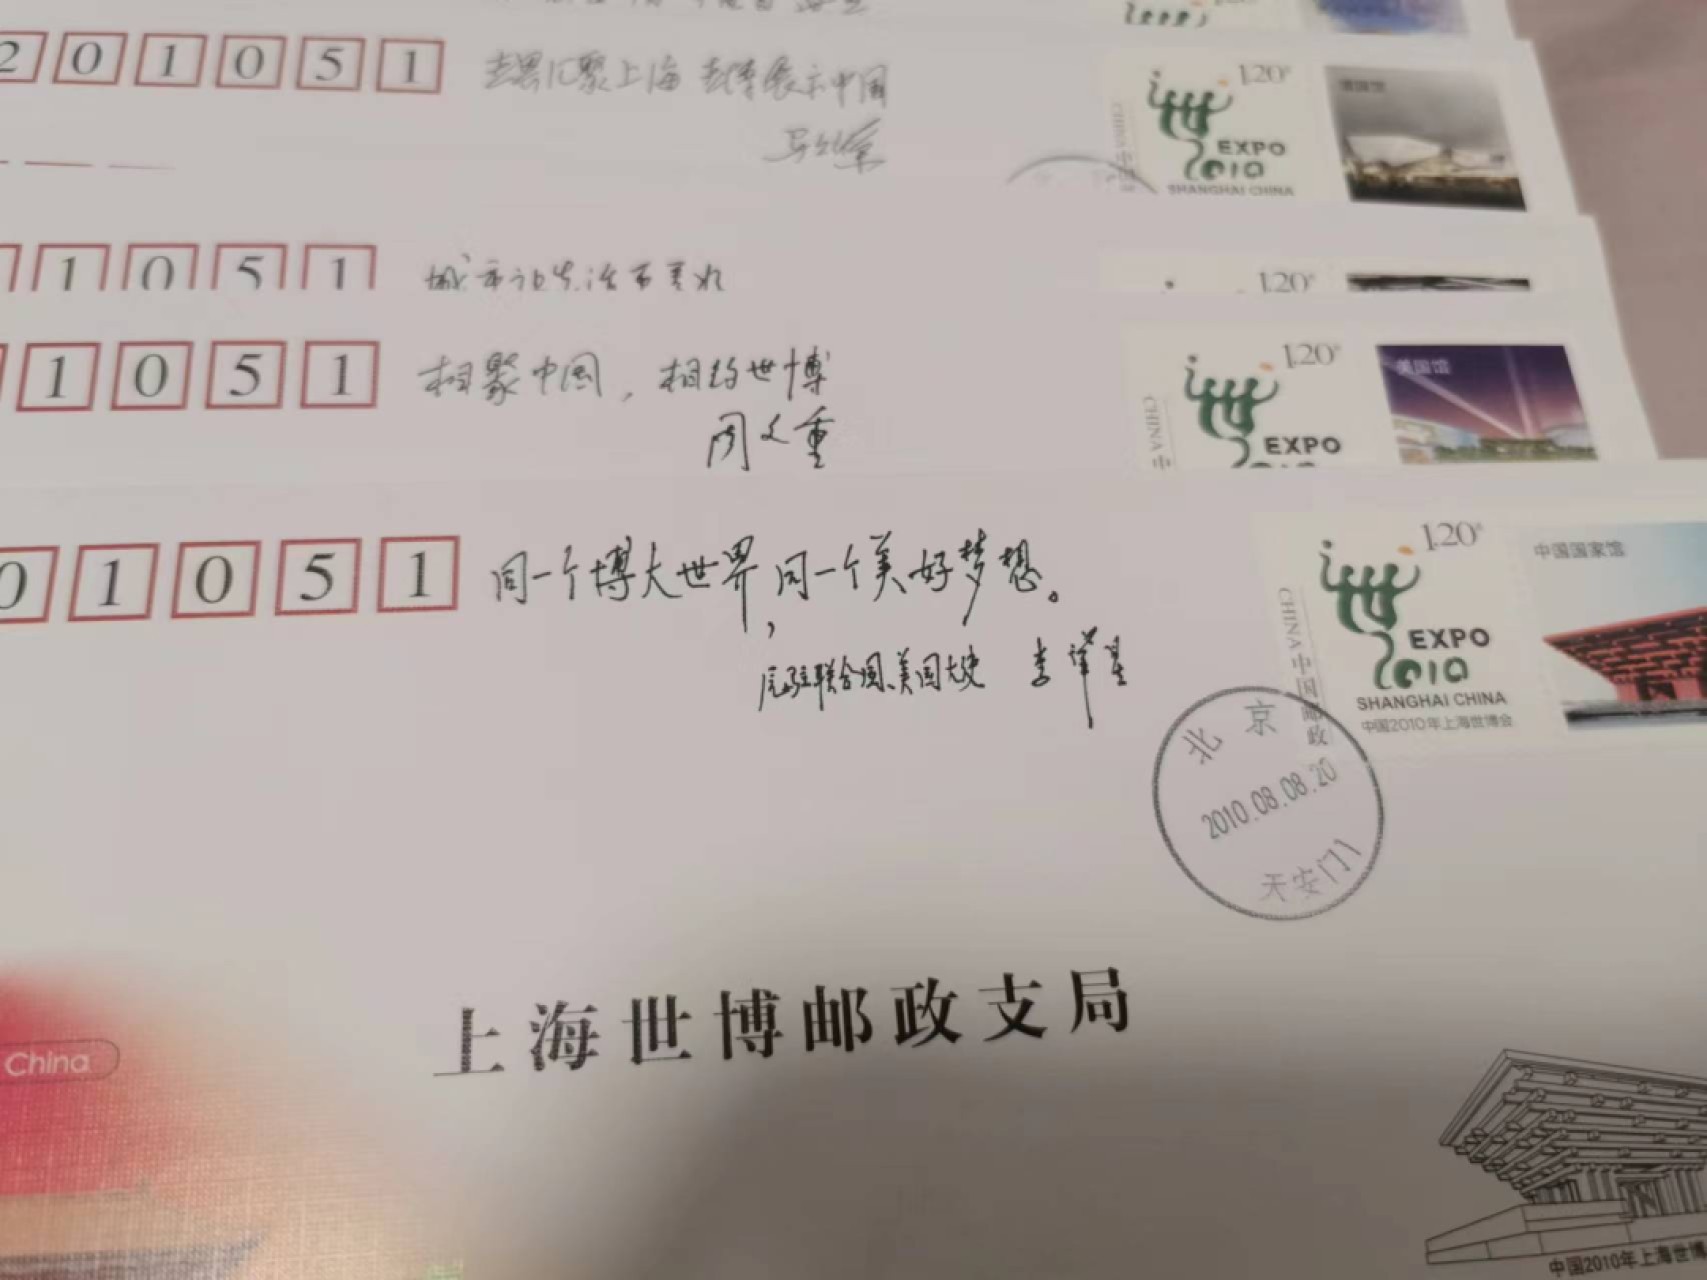 201051
世界汇聚上海 世博展示中国
1.20
EXPO
2010
SHANGHAI CHINA
1051
城市让生活更美好
1.20
1051
相聚中国，相约世博
周文重
1.20
CHINA 中
EXPO
2010
美国馆
01051
同一个博大世界，同一个美好梦想。
原驻联合国、美国大使 李肇星
1.20
CHINA 中国邮政
EXPO
2010
SHANGHAI CHINA
中国2010年上海世博会
中国国家馆
北京
2010.08.08.20
天安门
上海世博邮政支局
China
中国2010年上海世博